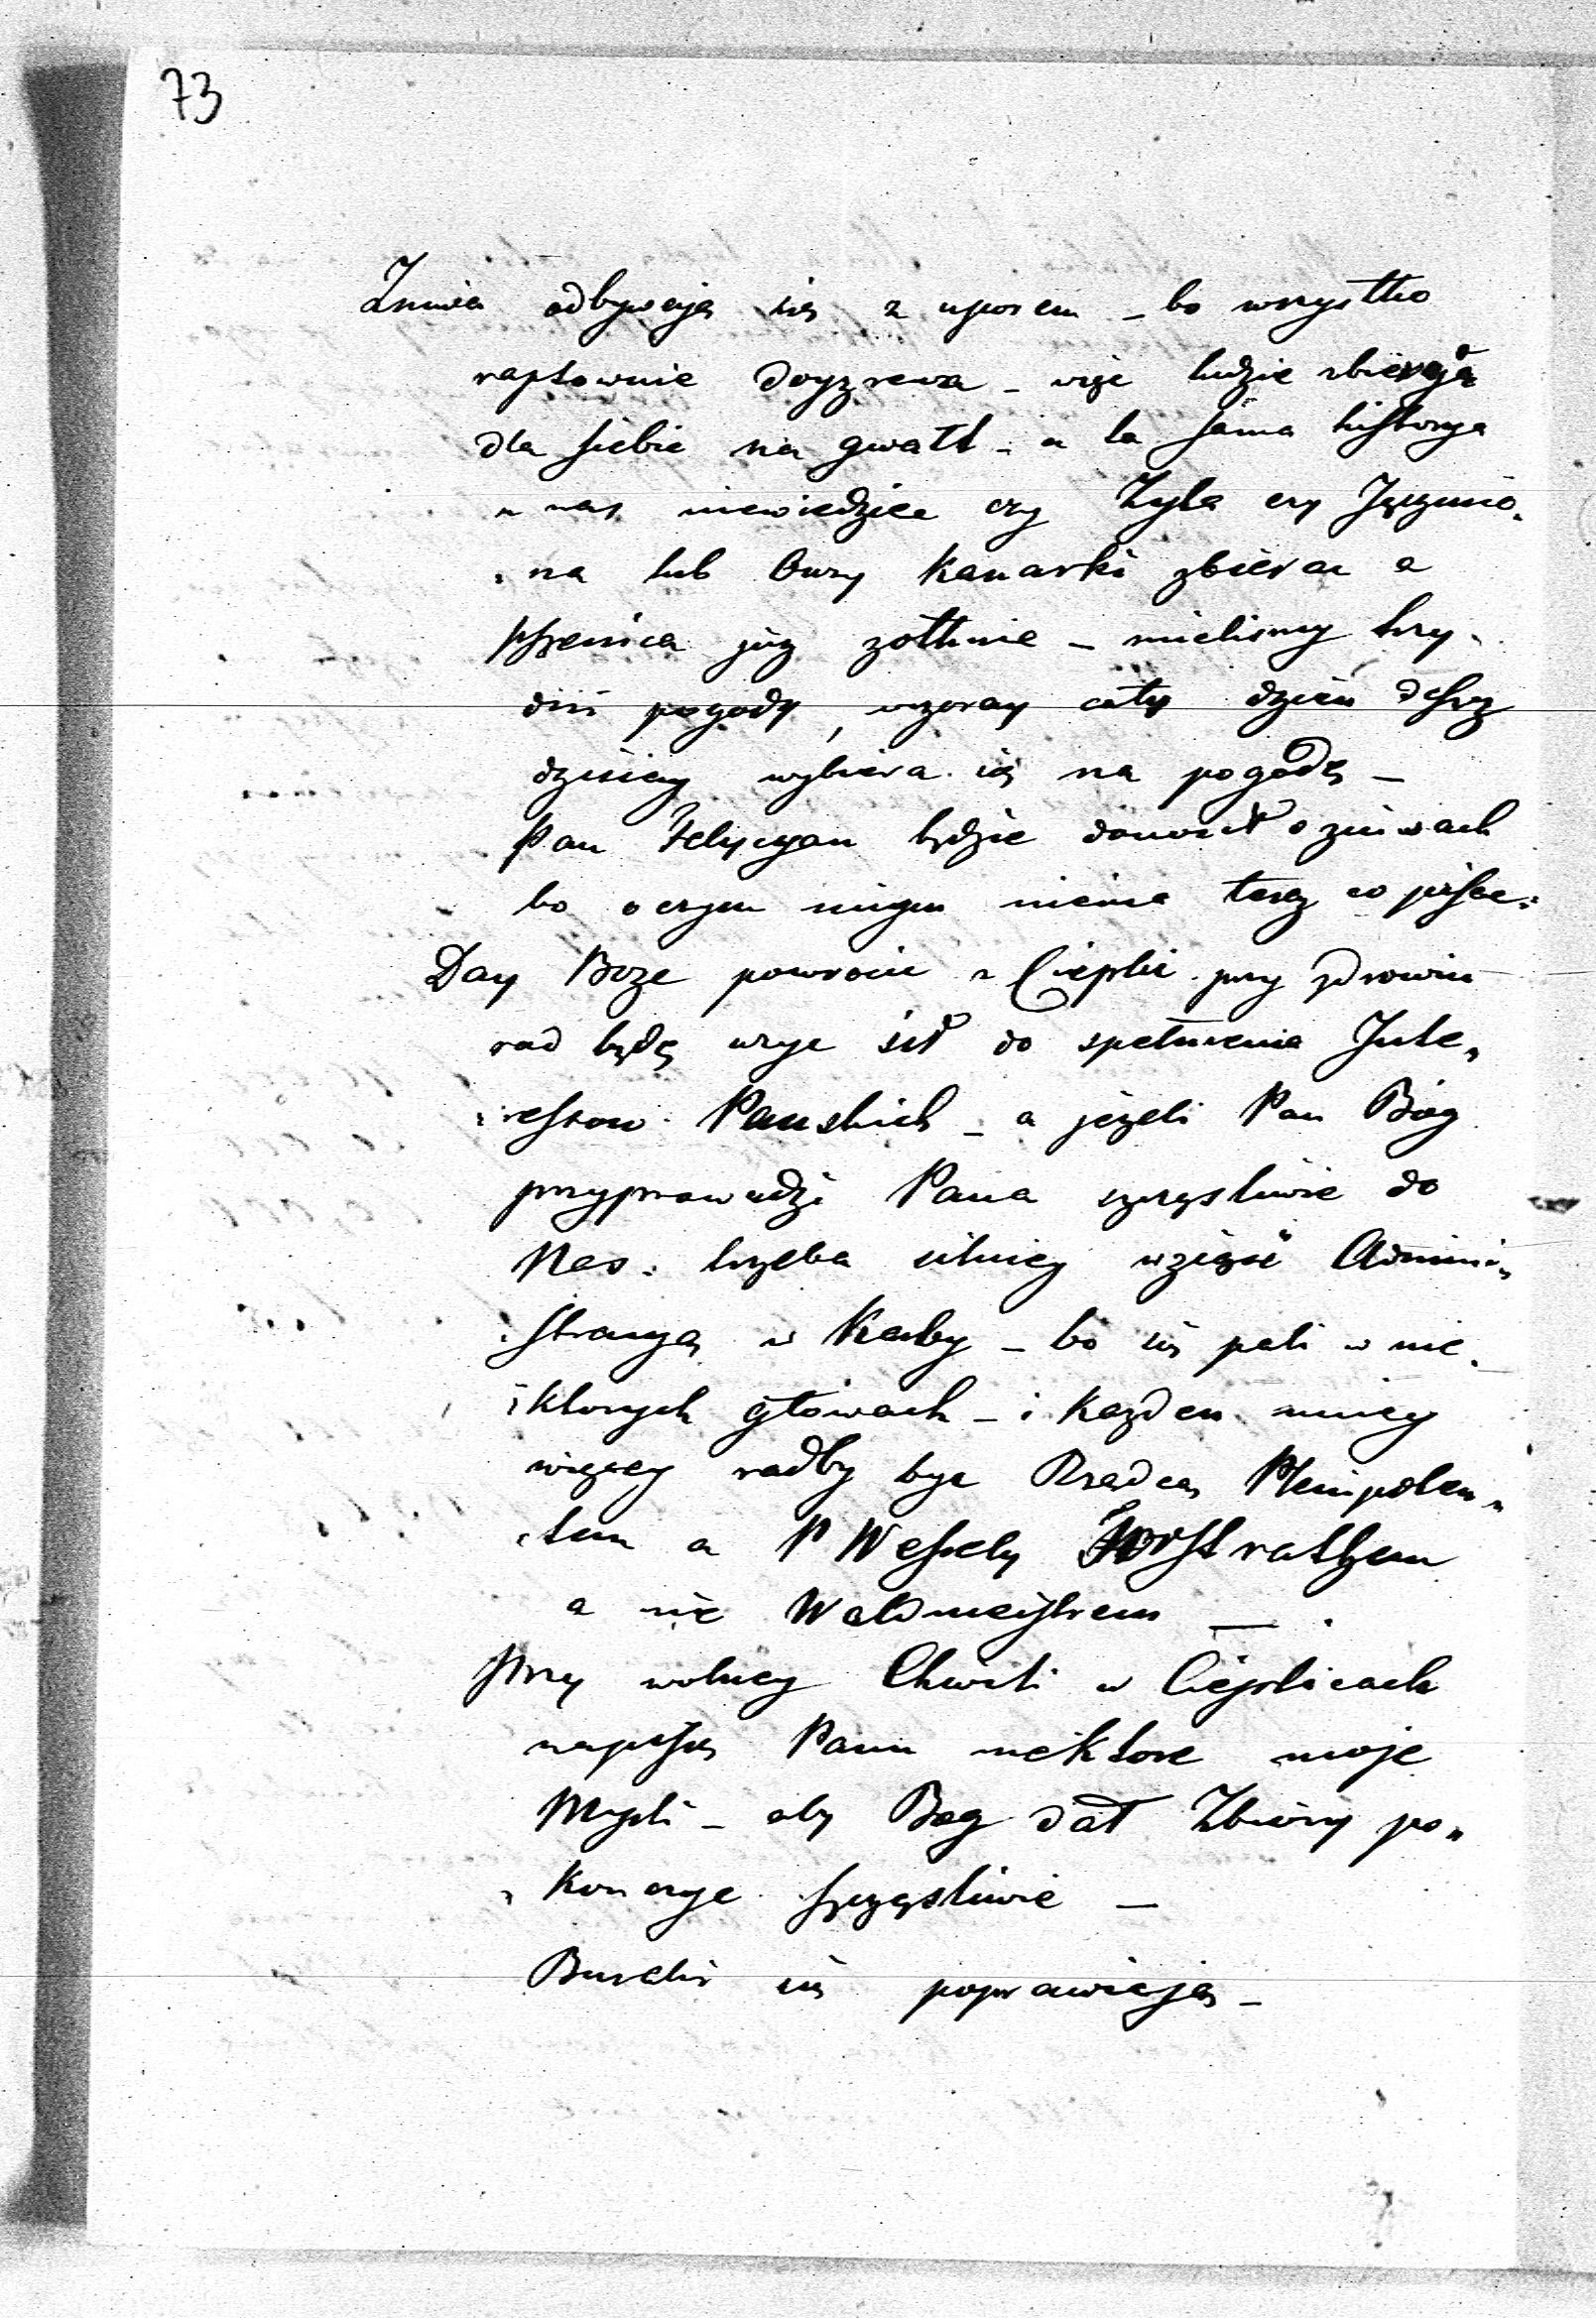 73
Zniwa odbywają się z uporem – bo wszystko
raptownie doyzrewa – więc ludzie zbierają
dla siebie na gwałt – a ta sama historya
u nas niewiedziec czy Zyta czy Jęczmio„
„na lub Owsy Kanarki zbierac a
pszenica juz zołtnie – mielismy trzy
dni pogody, wczoray cały dzień deszcz
dzisiay wybiera się na pogodę –
Pan Felycyan będzie donosił o zniwach
bo o czym innym niema teraz co pisac.
Day Boze powrocic z Cieplic przy zdrowiu
rad będę uzyc sił do spełnienia Inte„
„ressow Panskich – a jezeli Pan Bóg
przyprowadzi Pana szczęsliwie do
Nas: trzeba silniey wziąść Admini„
„stracyą w Karby – bo się pali w nie„
„ktorych głowach – i Kazden mniey
więcey radby byc Rządcą Plenipoten„
„tem a P Wessely Forstrathem
a nie Waldmeistrem –
Przy wolney Chwili w Cieplicach
napiszę Panu niektore moje
Mysli – aby Bog dał Zbiory po„
„konczyc szczęsliwie –
Buraki się poprawiają –